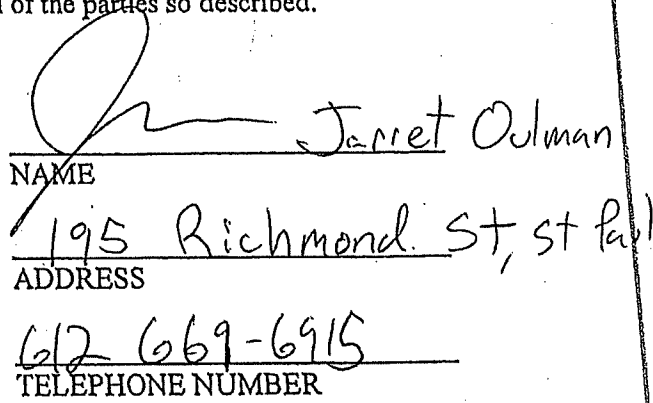 of the parties so described.
Jarret Oulman
NAME
195 Richmond. St, st Paul
ADDRESS
612 669-6915
TELEPHONE NUMBER